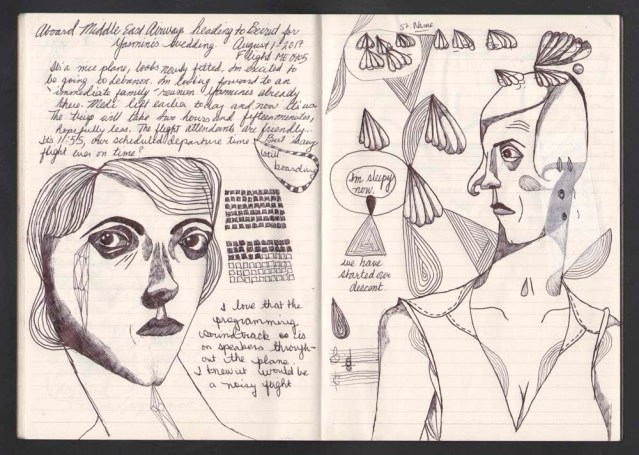 Aboard Middle East Airways heading to Beirut for
Yasmine's wedding. August 1st 2019
Flight ME 0425
It's a nice plane, looks newly fitted. I'm excited to
be going to Lebanon. I'm looking forward to an
immediate family reunion. Yasmine's already
there. Medi left earlier today and now it's us.
The trip will take two hours and fifteen minutes,
hopefully less. The flight attendants are friendly.
It's 11:55, our scheduled departure time. But many
flight ever on time?
still
boarding
I love that the
programming
soundtrack is
on speakers through-
out the plane
I knew it would be
a noisy flight
Name
I'm sleepy
now.
we have
started our
descent.